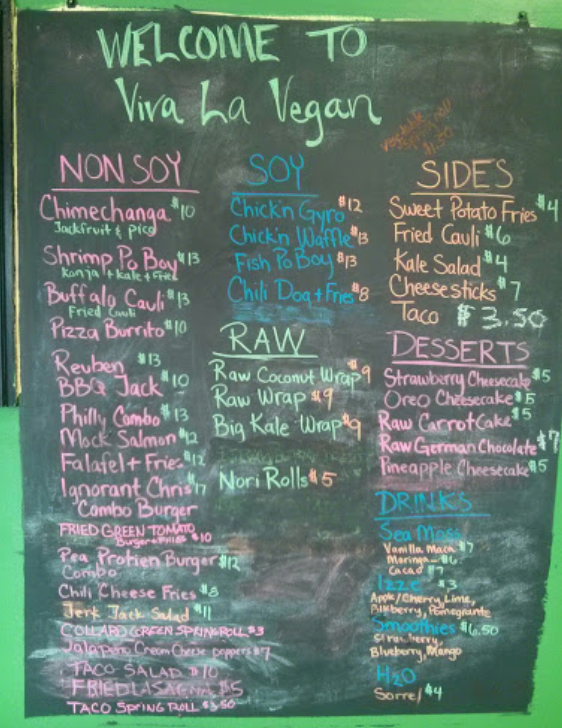 WELCOME TO
Viva La Vegan
$1.50
NON SOY
Chimechanga $10
Jackfruit & pico
Shrimp Po Boy $13
Konja + Kale + Fried
Buffalo Cauli $13
Fried Cauli
Pizza Burrito $10
Reuben $13
BBQ Jack $10
Philly Combo $13
Mock Salmon $12
Falafel + Fries $12
Ignorant Chris $17
Combo Burger
FRIED GREEN TOMATO
Burger + FRIES $10
Pea Protien Burger $12
Combo
Chili Cheese Fries $8
Jerk Jack Salad $11
COLLARD GREEN SPRING ROLL $3
Jalapeno Cream Cheese peppers $7
TACO SALAD $10
FRIED LASAGNA $5
TACO SPRING ROLL $3.50
SOY
Chick'n Gyro $12
Chick'n Waffle $13
Fish Po Boy $13
Chili Dog + Fries $8
RAW
Raw Coconut Wrap $9
Raw Wrap $9
Big Kale Wrap $9
Nori Rolls $5
SIDES
Sweet Potato Fries $4
Fried Cauli $6
Kale Salad $4
Cheesesticks $7
Taco $3.50
DESSERTS
Strawberry Cheesecake $5
Oreo Cheesecake $5
Raw Carrot Cake $5
Raw German Chocolate $7
Pineapple Cheesecake $5
DRINKS
Sea Moss
Vanilla Maca $7
Moringa - $6
Cacao $7
Izze $3
Apple/Cherry Lime,
Blkberry, Pomegranate
Smoothies $6.50
Strawberry,
Blueberry, Mango
H2O
Sorrel $4